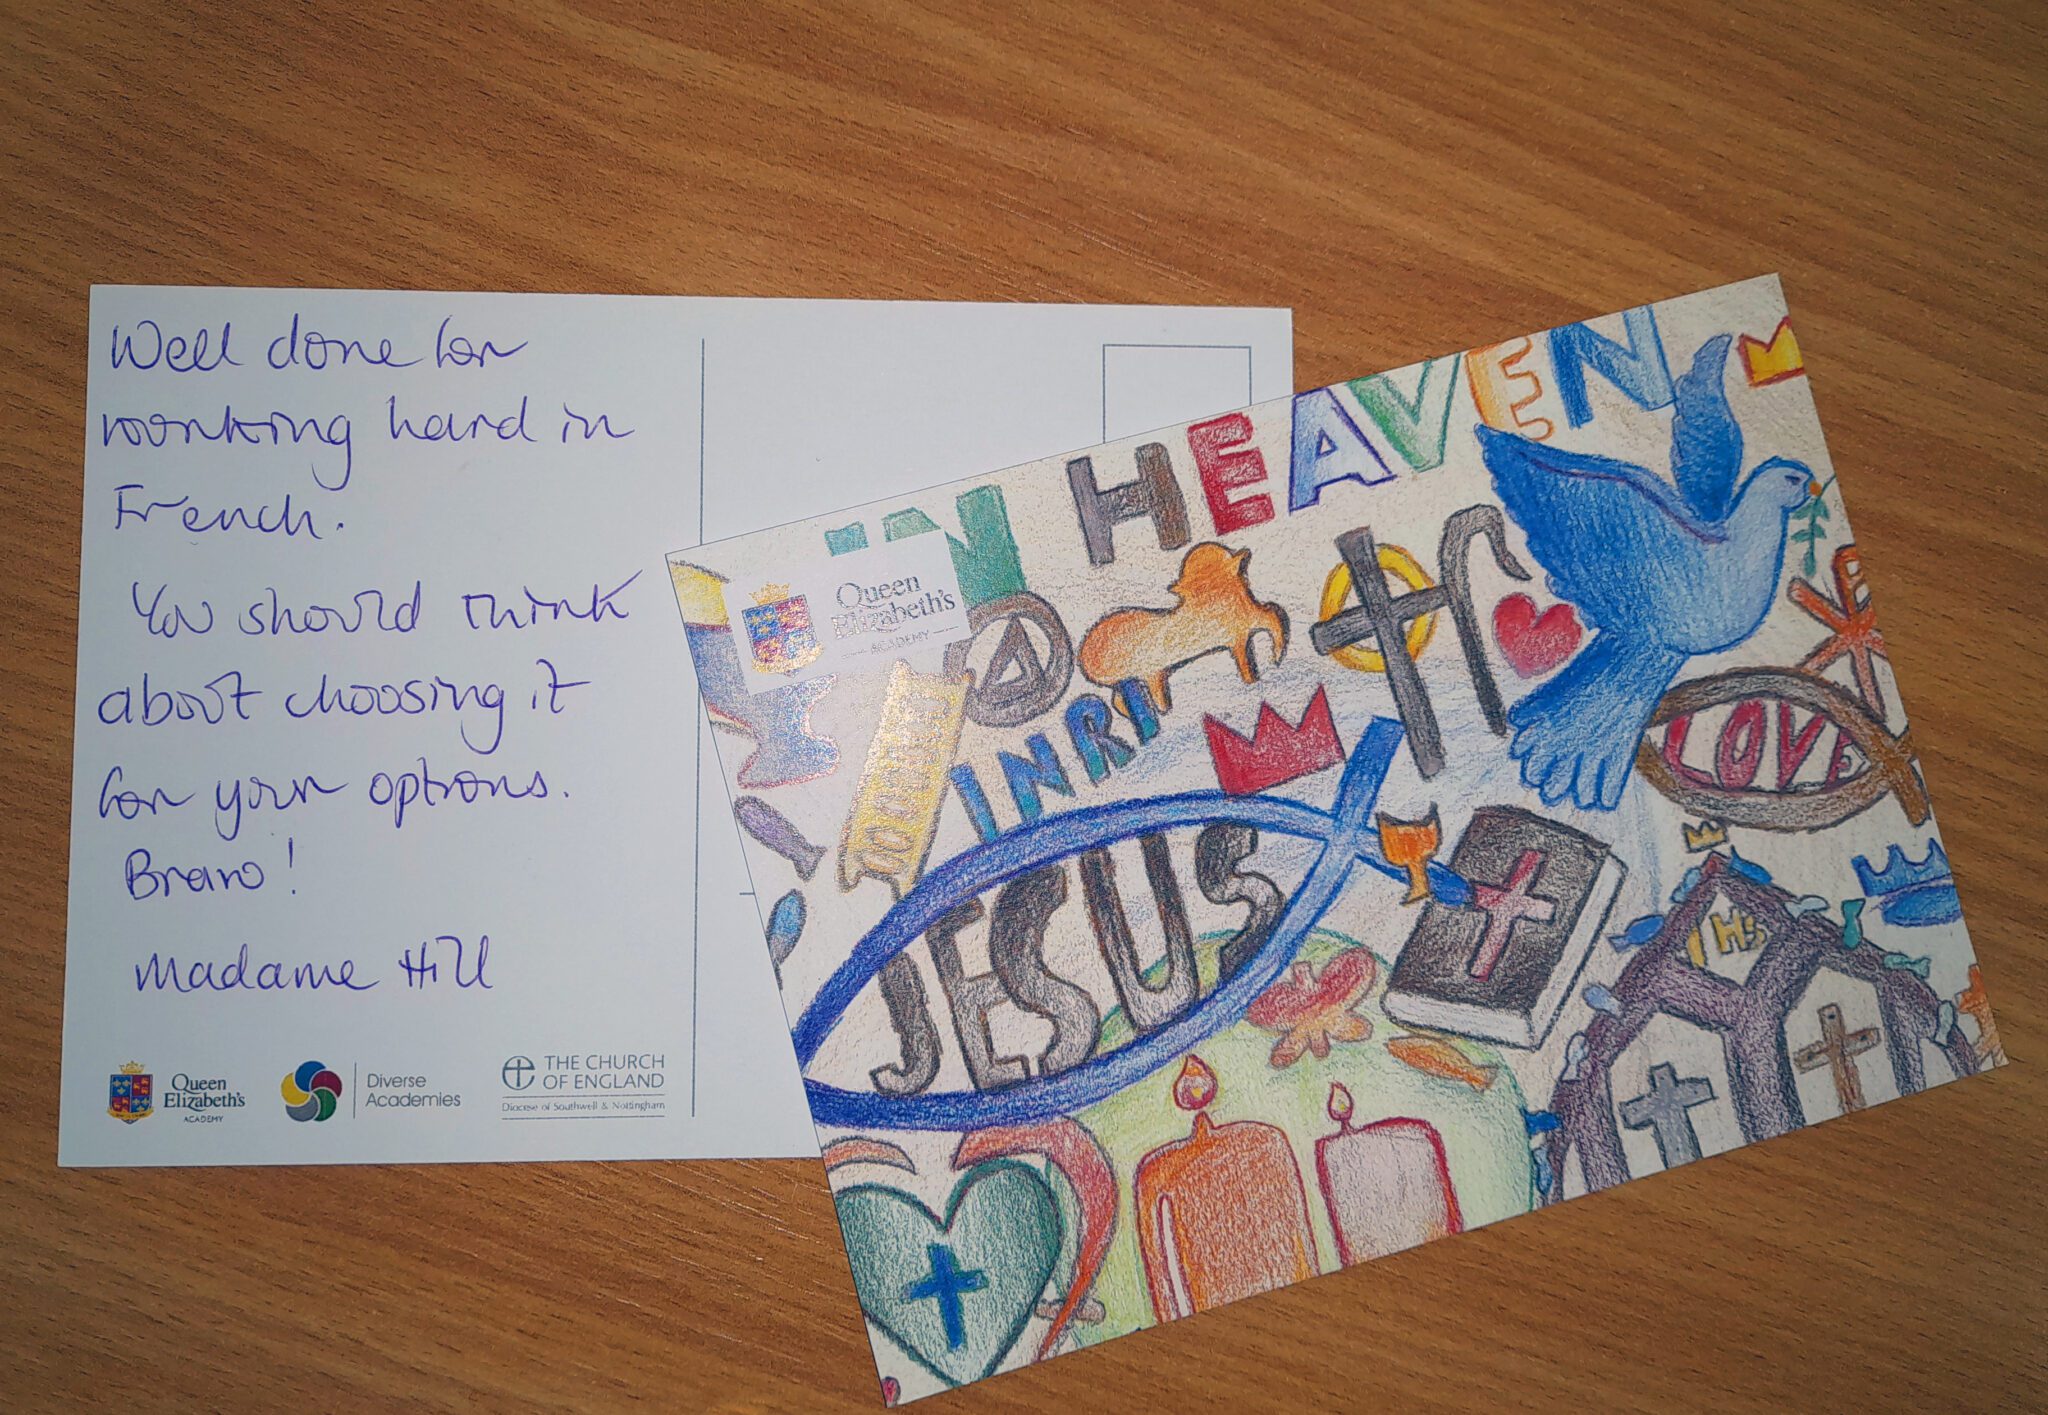 Well done for
working hard in
French.
You should think
about choosing it
for your options.
Bravo!
Madame Hill
Queen
Elizabeth's
ACADEMY
Diverse
Academies
THE CHURCH
OF ENGLAND
Diocese of Southwell & Nottingham
IN HEAVEN
Queen
Elizabeth's
ACADEMY
INRI
LOVE
JESUS
IHS